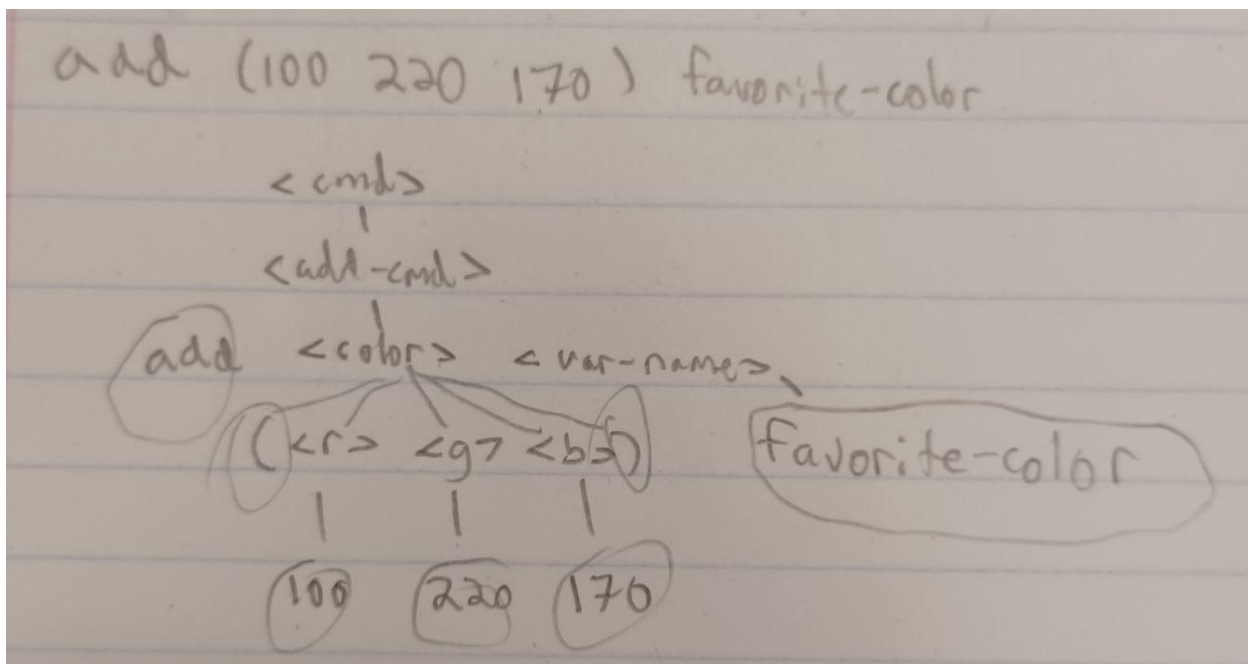 add (100 220 170) favorite-color
<cmd>
<add-cmd>
add <color> <var-name>
(<r> <g> <b>) favorite-color
100 220 170